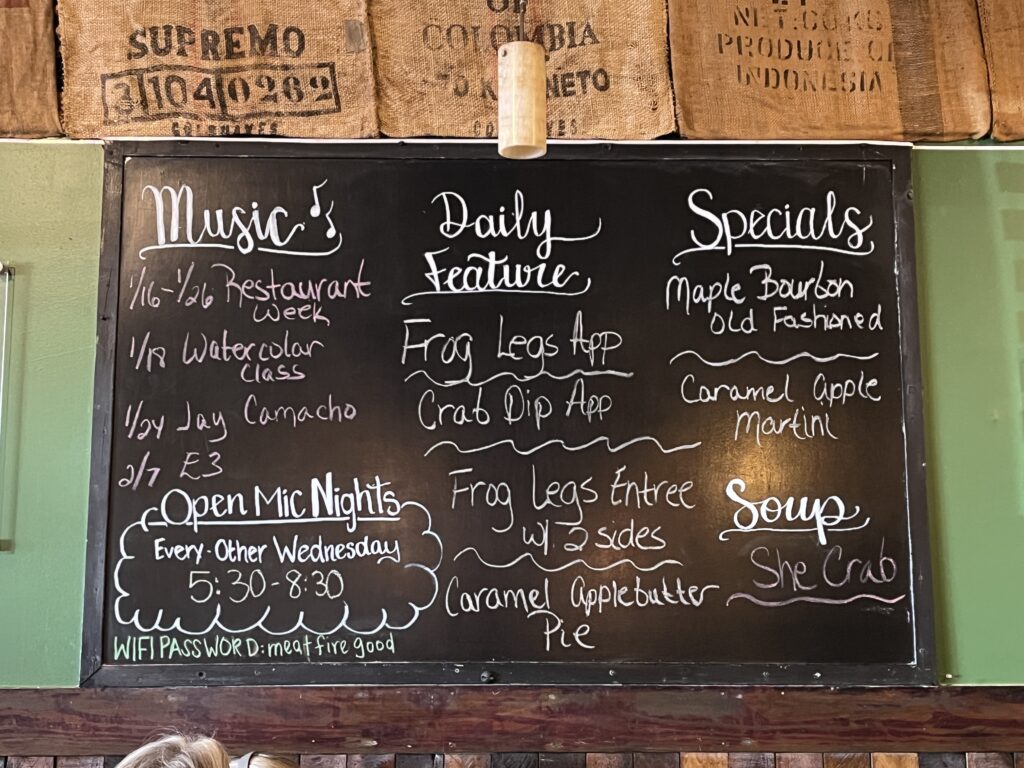 SUPREMO
3 104 0262
OF
COLOMBIA
NETO
NET:60KG
PRODUCE OF
INDONESIA
Music
1/16-1/26 Restaurant
Week
1/18 Watercolar
Class
1/24 Jay Camacho
2/7 E3
Open Mic Nights
Every-Other Wednesday
5:30-8:30
WIFI PASSWORD: meat fire good
Daily
Feature
Frog Legs App
Crab Dip App
Frog Legs Entree
w/ 2 sides
Caramel Applebutter
Pie
Specials
Maple Bourbon
Old Fashioned
Caramel Apple
Martini
Soup
She Crab